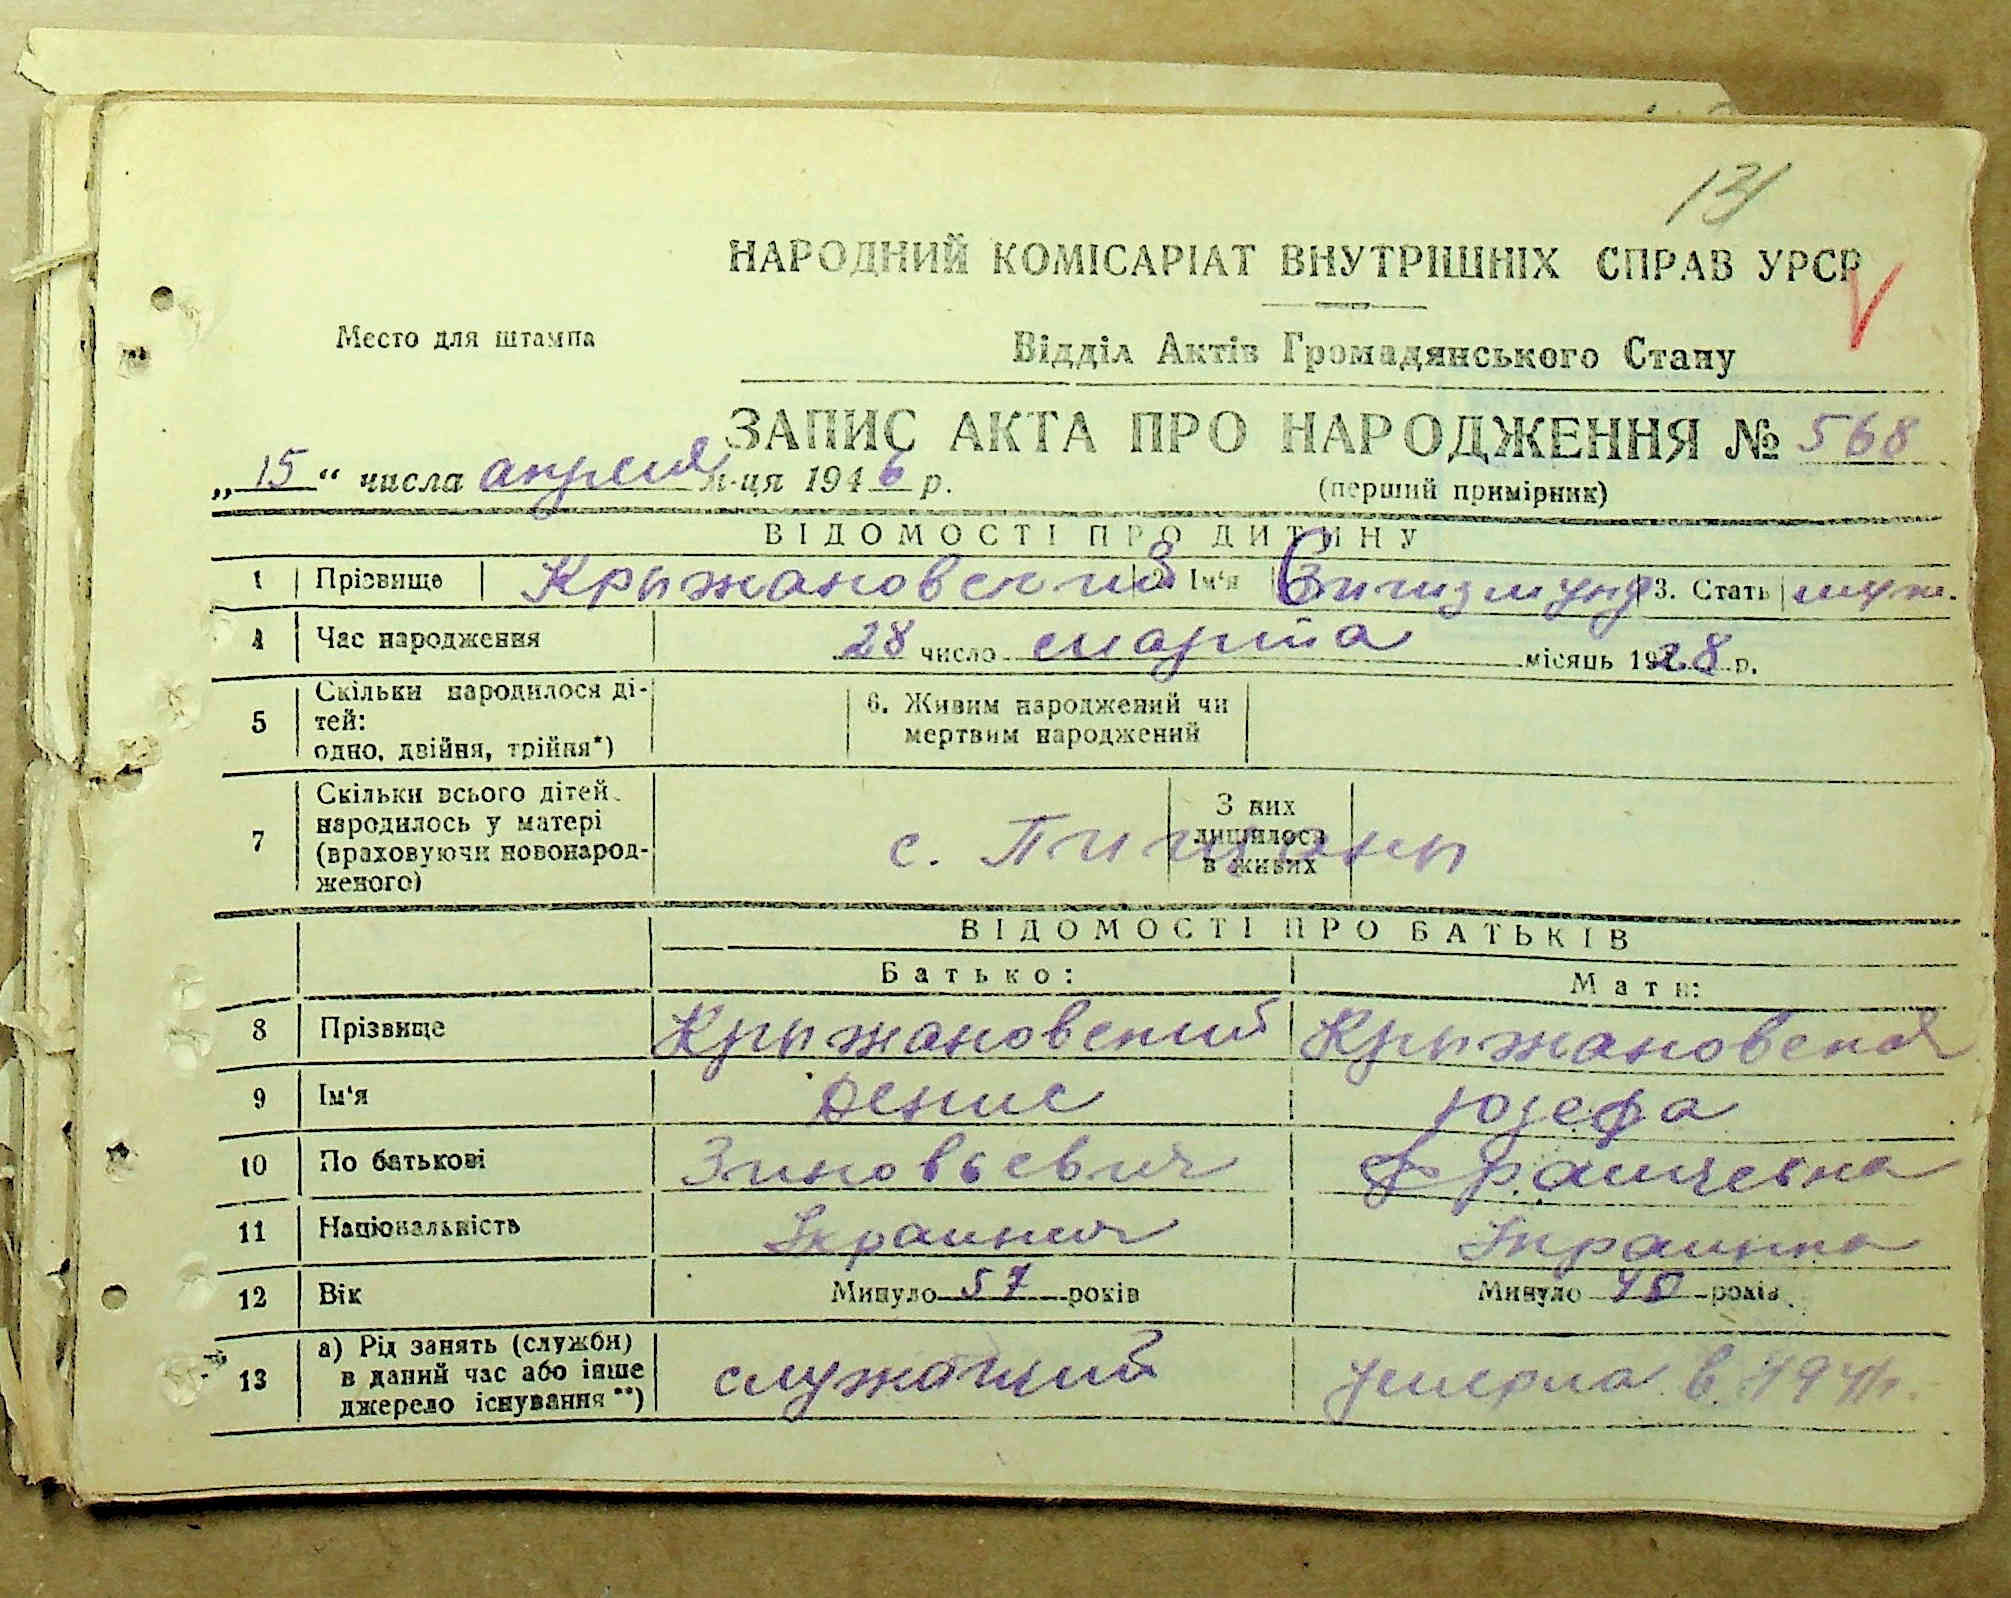 131
НАРОДНИЙ КОМІСАРІАТ ВНУТРІШНІХ СПРАВ УРСР
Место для штампа
Відділ Актів Громадянського Стану
ЗАПИС АКТА ПРО НАРОДЖЕННЯ № 568
„15“ числа апреля м-ця 1946 р.
(перший примірник)
ВІДОМОСТІ ПРО ДИТИНУ
1 Прізвище Крыжановский 2. Ім'я Сигизмунд 3. Стать муж.
4 Час народження 28 число марта місяць 1928 р.
5 Скільки народилося ді-
тей:
одно, двійня, трійня*)
6. Живим народжений чи
мертвим народжений
7 Скільки всього дітей
народилось у матері
(враховуючи новонарод-
женого)
с. Пищаны
З них
лишилося
в живих
ВІДОМОСТІ ПРО БАТЬКІВ
Батько: Мати:
8 Прізвище Крыжановский Крыжановская
9 Ім'я Денис Юзефа
10 По батькові Зиновьевич
11 Національність Украинец Украинка
12 Вік Минуло 57 років Минуло 40 років
13 а) Рід занять (служби)
в даний час або інше
джерело існування**)
служащий умерла в 1941 г.